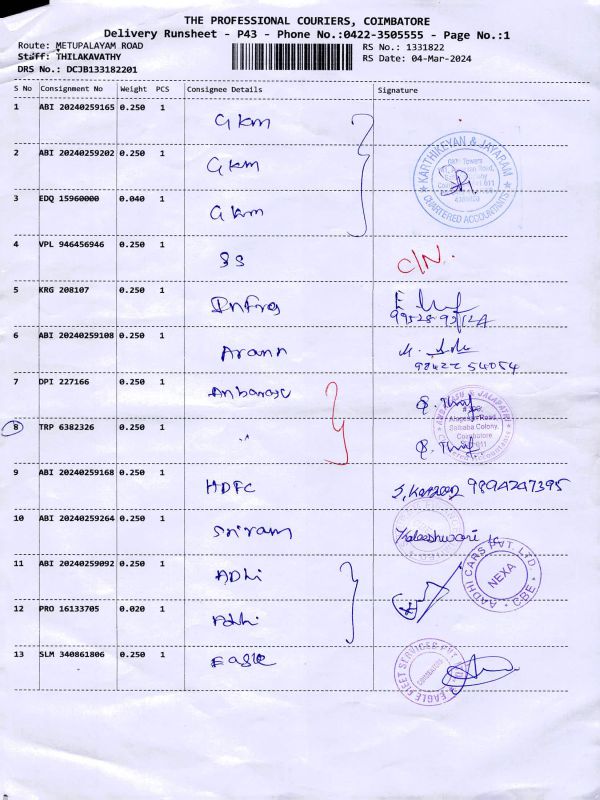 THE PROFESSIONAL COURIERS, COIMBATORE
Delivery Runsheet - P43 - Phone No.:0422-3505555 - Page No.:1
Route: METUPALAYAM ROAD
Staff: THILAKAVATHY
DRS No.: DCJB133182201
RS No.: 1331822
RS Date: 04-Mar-2024
S No Consignment No Weight PCS Consignee Details Signature
1 ABI 20240259165 0.250 1 Gkm
2 ABI 20240259202 0.250 1 Gkm
3 EDQ 15960000 0.040 1 Gkm
KARTHIKEYAN & JAYARAM
CHARTERED ACCOUNTANTS
4 VPL 946456946 0.250 1 SS C/N.
5 KRG 208107 0.250 1 Infra
6 ABI 20240259108 0.250 1 Arann
98422 54054
7 DPI 227166 0.250 1 Anbarasu
8 TRP 6382326 0.250 1 "
Alagesan Road
Saibaba Colony,
Coimbatore
9 ABI 20240259168 0.250 1 HDFC 9894247395
10 ABI 20240259264 0.250 1 Sriram
11 ABI 20240259092 0.250 1 ADhi
AADHI CARS PVT LTD
NEXA
CBE
12 PRO 16133705 0.020 1 Adhi
13 SLM 340861806 0.250 1 Eagle
EAGLE FLEET SERVICES PVT
COIMBATORE